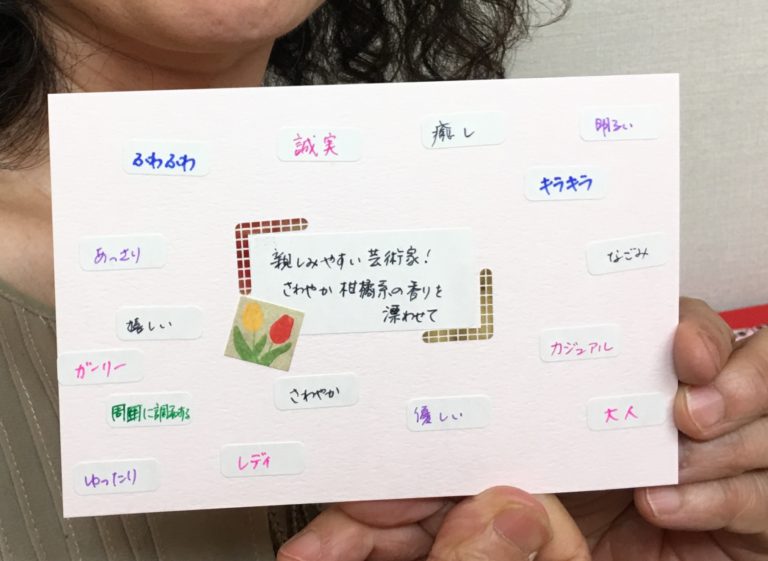 ふわふわ
誠実
癒し
明るい
キラキラ
あっさり
親しみやすい芸術家!
さわやか柑橘系の香りを
漂わせて
なごみ
嬉しい
ガーリー
カジュアル
さわやか
周囲に調和する
優しい
大人
レディ
ゆったり